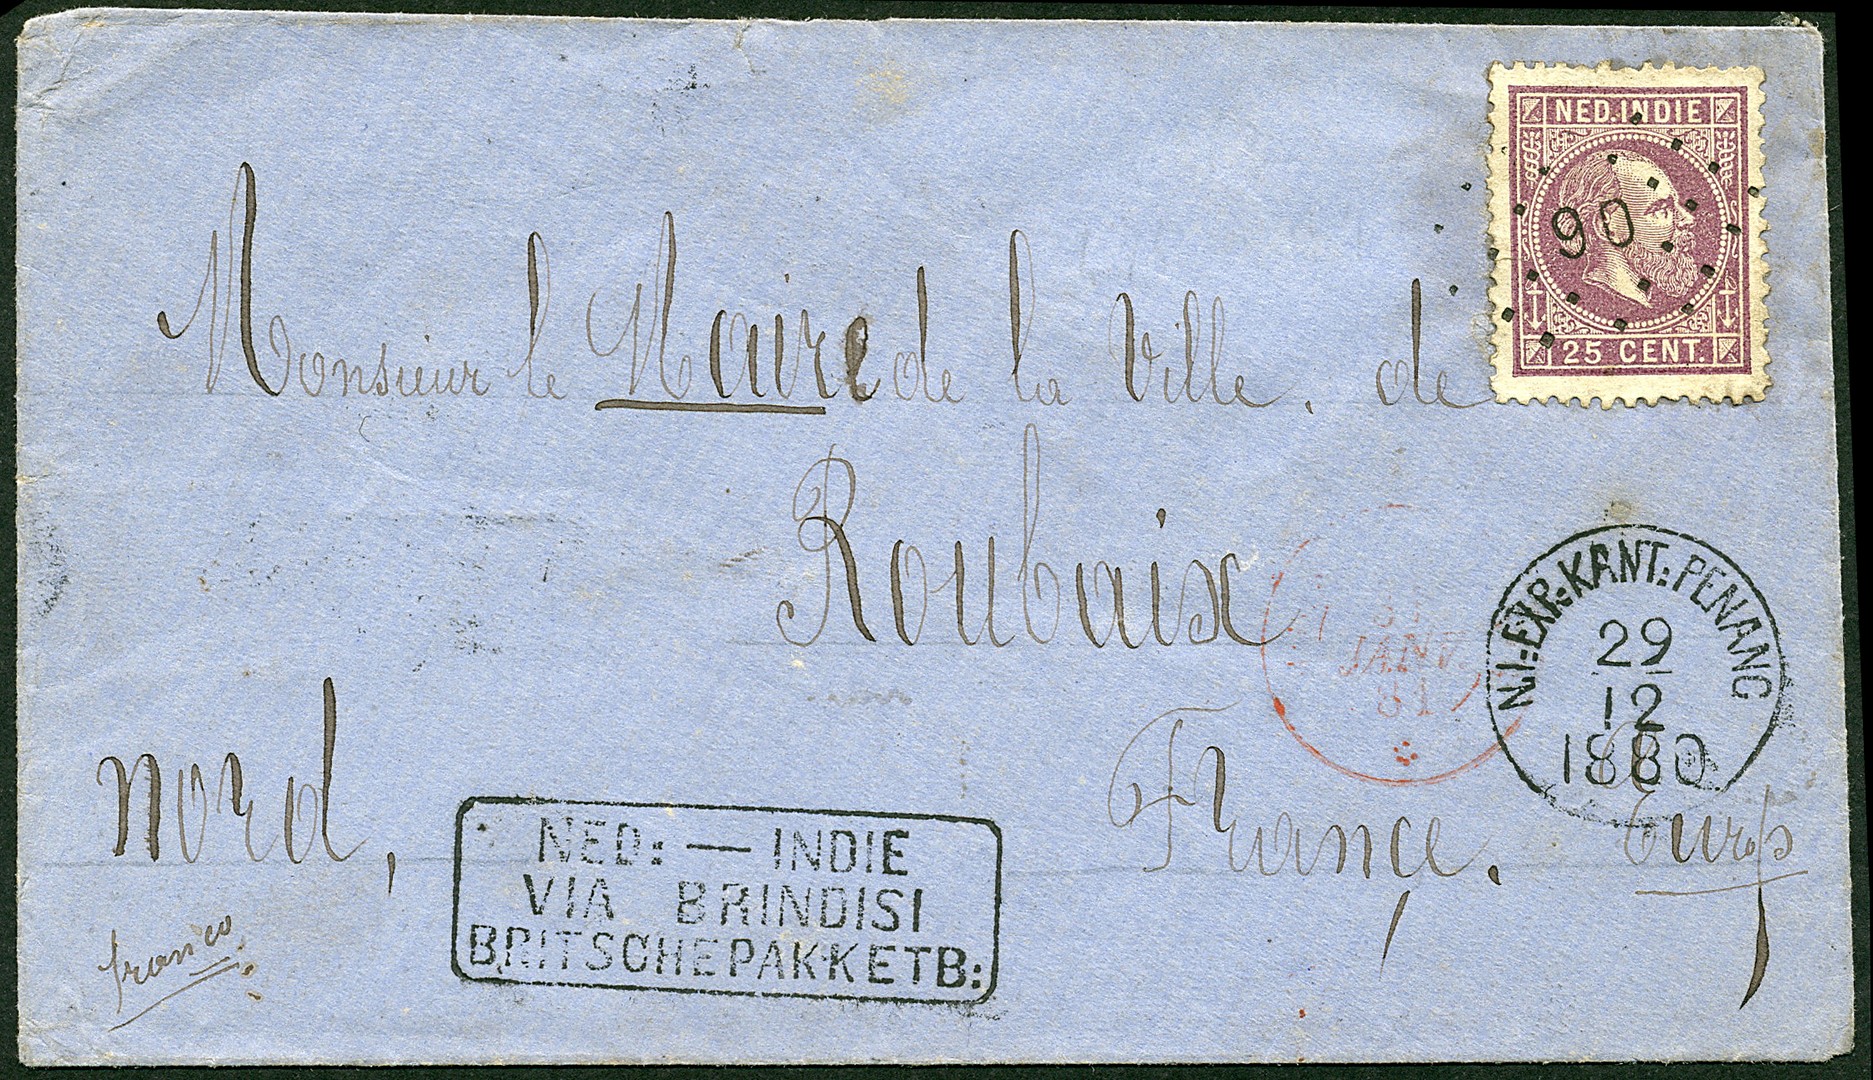 NED. INDIE
90
25 CENT.
Monsieur le Maire de la Ville. de
Roubaix
JANV.
81
N.I: EXP: KANT: PENANG
29
12
1880
Nord,
France.
NED: — INDIE
VIA BRINDISI
BRITSCHEPAKKETB:
franco